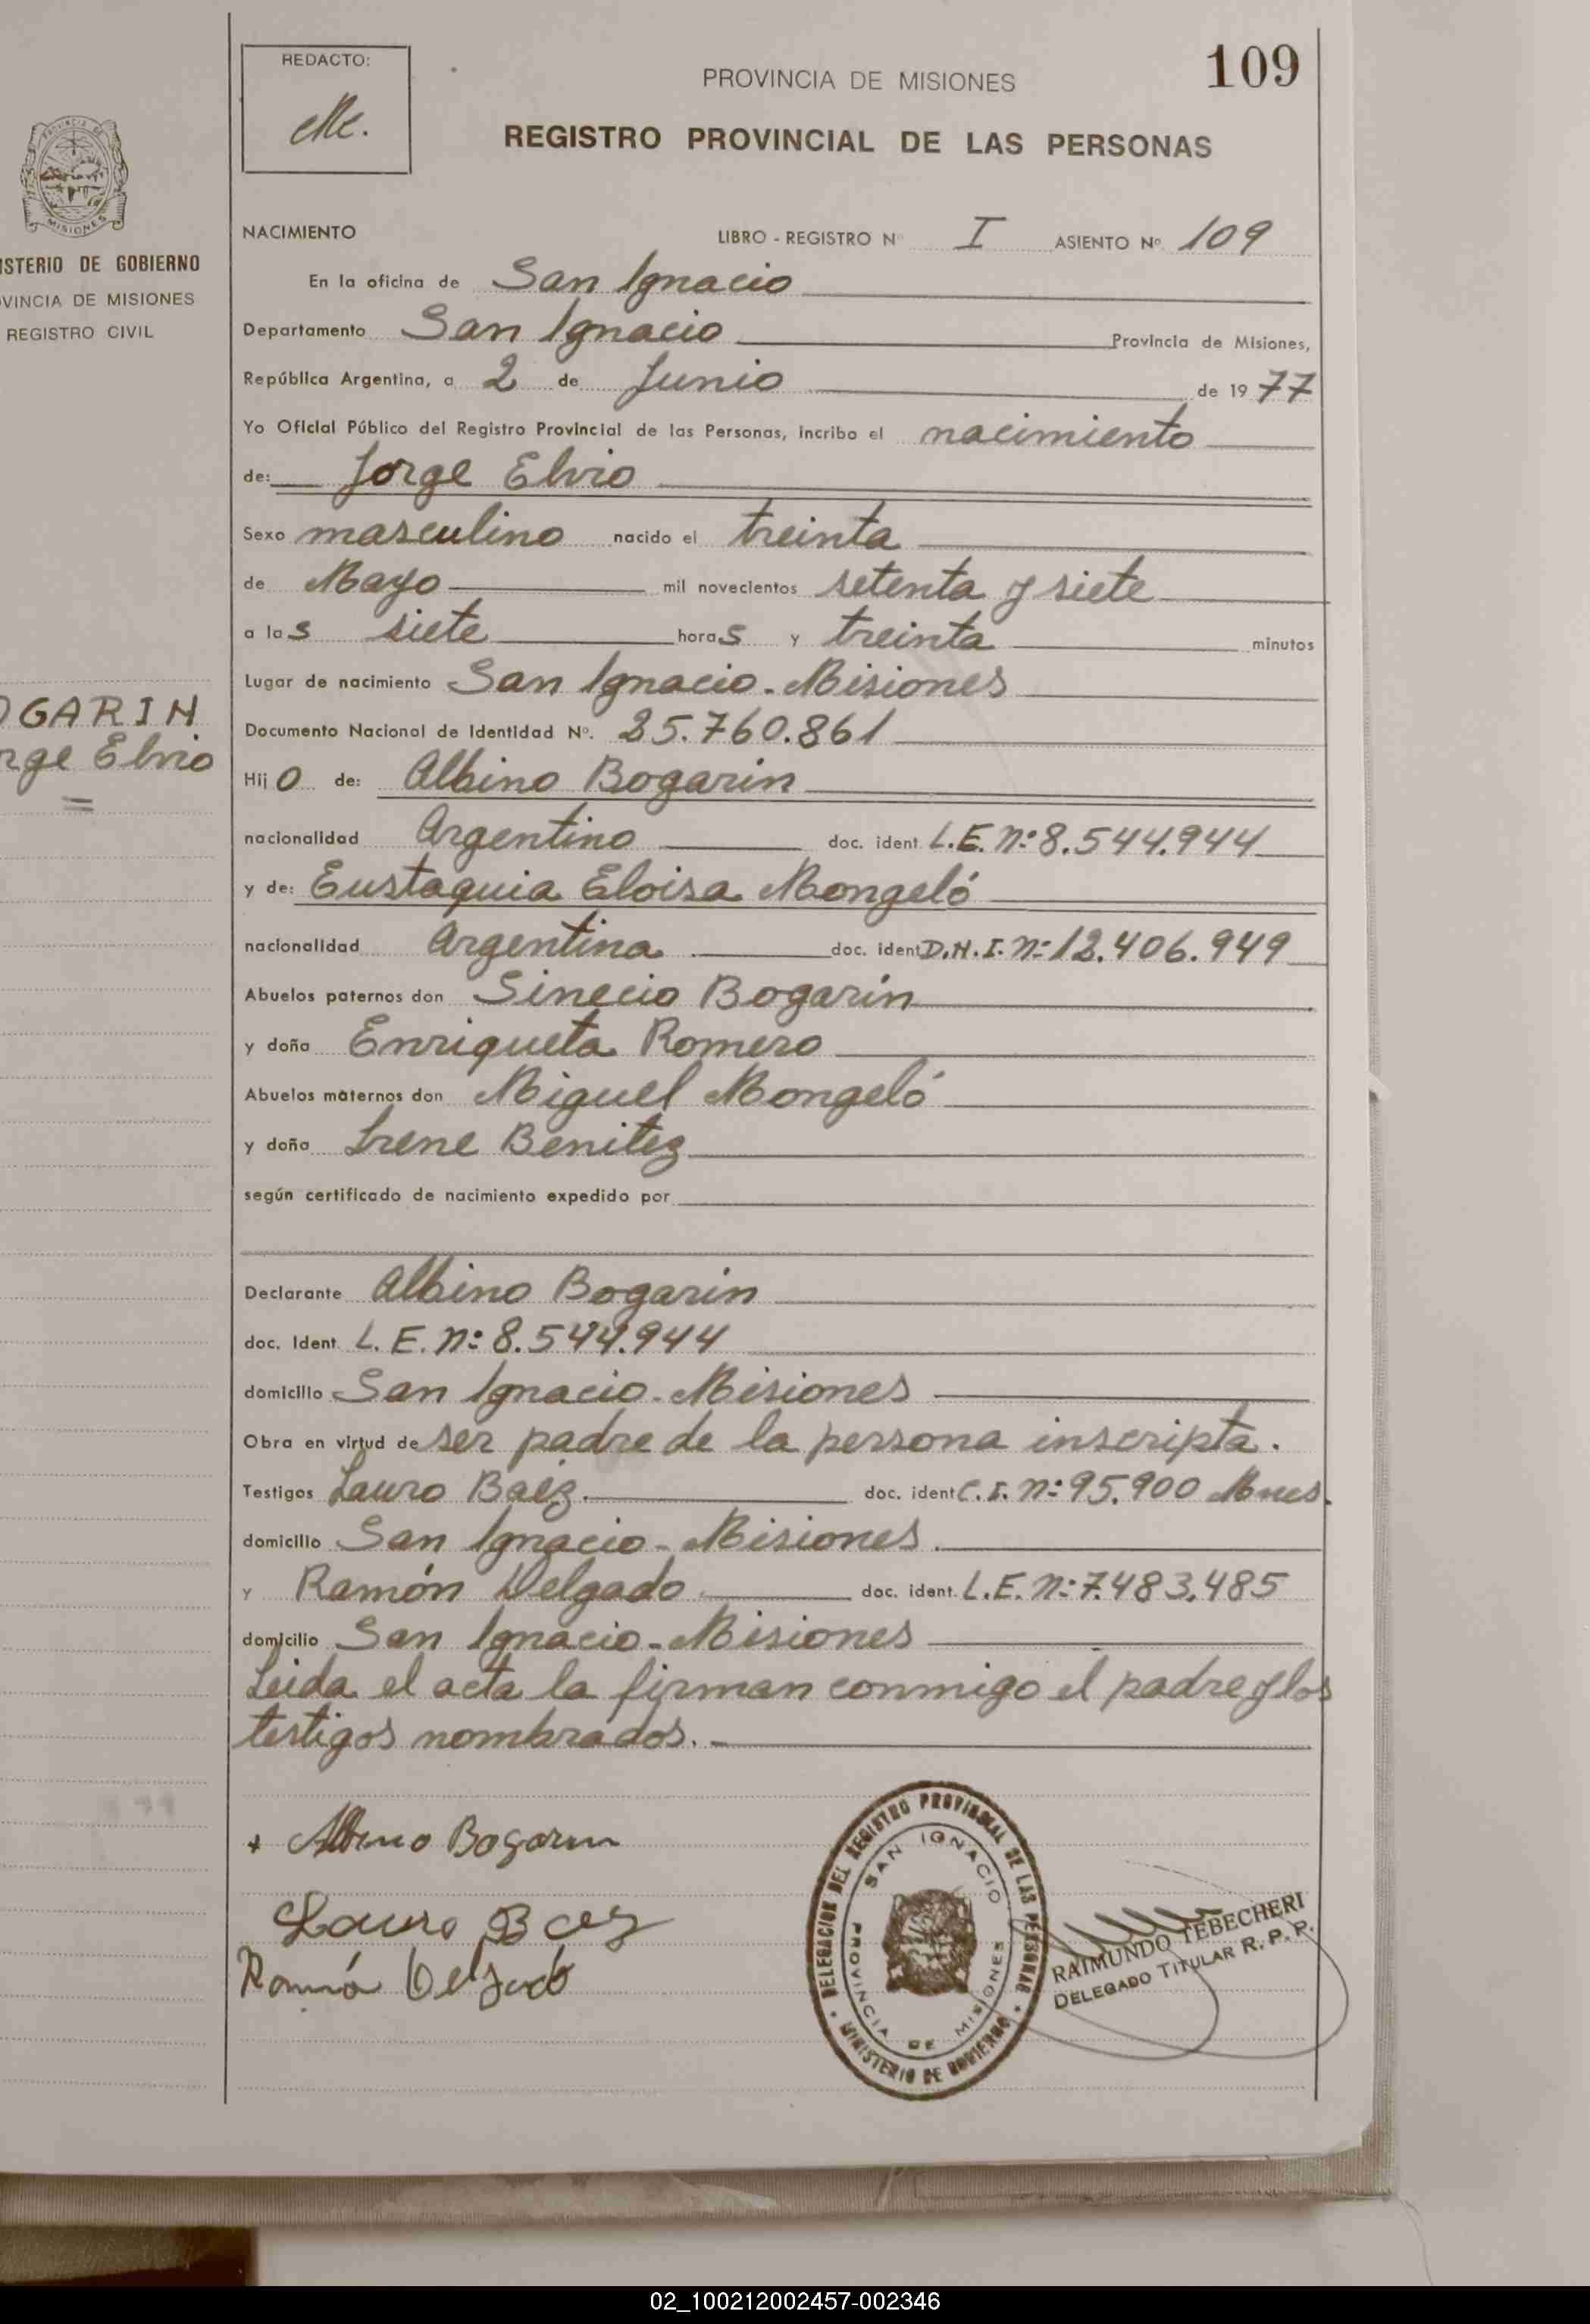 REDACTO:
Me.
PROVINCIA DE MISIONES
109
REGISTRO PROVINCIAL DE LAS PERSONAS
ISTERIO DE GOBIERNO
OVINCIA DE MISIONES
REGISTRO CIVIL
NACIMIENTO LIBRO - REGISTRO Nº I ASIENTO Nº 109
En la oficina de San Ignacio
Departamento San Ignacio Provincia de Misiones,
República Argentina, a 2 de Junio de 1977
Yo Oficial Público del Registro Provincial de las Personas, incribo el nacimiento
de: Jorge Elvio
Sexo masculino nacido el treinta
de Mayo mil novecientos setenta y siete
a las siete horas y treinta minutos
Lugar de nacimiento San Ignacio - Misiones
OGARIN
rge Elvio
=
Documento Nacional de Identidad Nº. 25.760.861
Hijo de: Albino Bogarin
nacionalidad Argentino doc. ident. L.E. Nº 8.544.944
y de: Eustaquia Eloisa Mongeló
nacionalidad Argentina doc. ident D.N.I. Nº 12.406.949
Abuelos paternos don Sinecio Bogarín
y doña Enriqueta Romero
Abuelos maternos don Miguel Mongeló
y doña Irene Benitez
según certificado de nacimiento expedido por
Declarante Albino Bogarin
doc. Ident. L.E. Nº 8.544.944
domicilio San Ignacio - Misiones
Obra en virtud de ser padre de la persona inscripta.
Testigos Lauro Baéz. doc. ident C.I. Nº 95.900 Mnes.
domicilio San Ignacio - Misiones.
y Ramón Delgado doc. ident. L.E. Nº 7.483.485
domicilio San Ignacio - Misiones
Leida el acta la firman conmigo el padre y los
testigos nombrados. -
+ Albino Bogarin
Lauro Baez
Ramón Delgado
DELEGACION DEL REGISTRO PROVINCIAL DE LAS PERSONAS
MINISTERIO DE GOBIERNO
SAN IGNACIO
PROVINCIA DE MISIONES
RAIMUNDO TEBECHERI
DELEGADO TITULAR R. P. P.
02_100212002457-002346